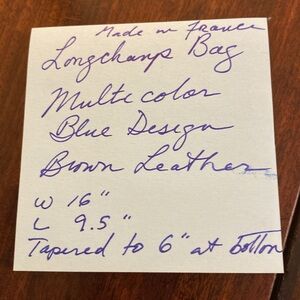 Made in France
Longchamp Bag
Multi color
Blue Design
Brown Leather
W 16"
L 9.5"
Tapered to 6" at bottom